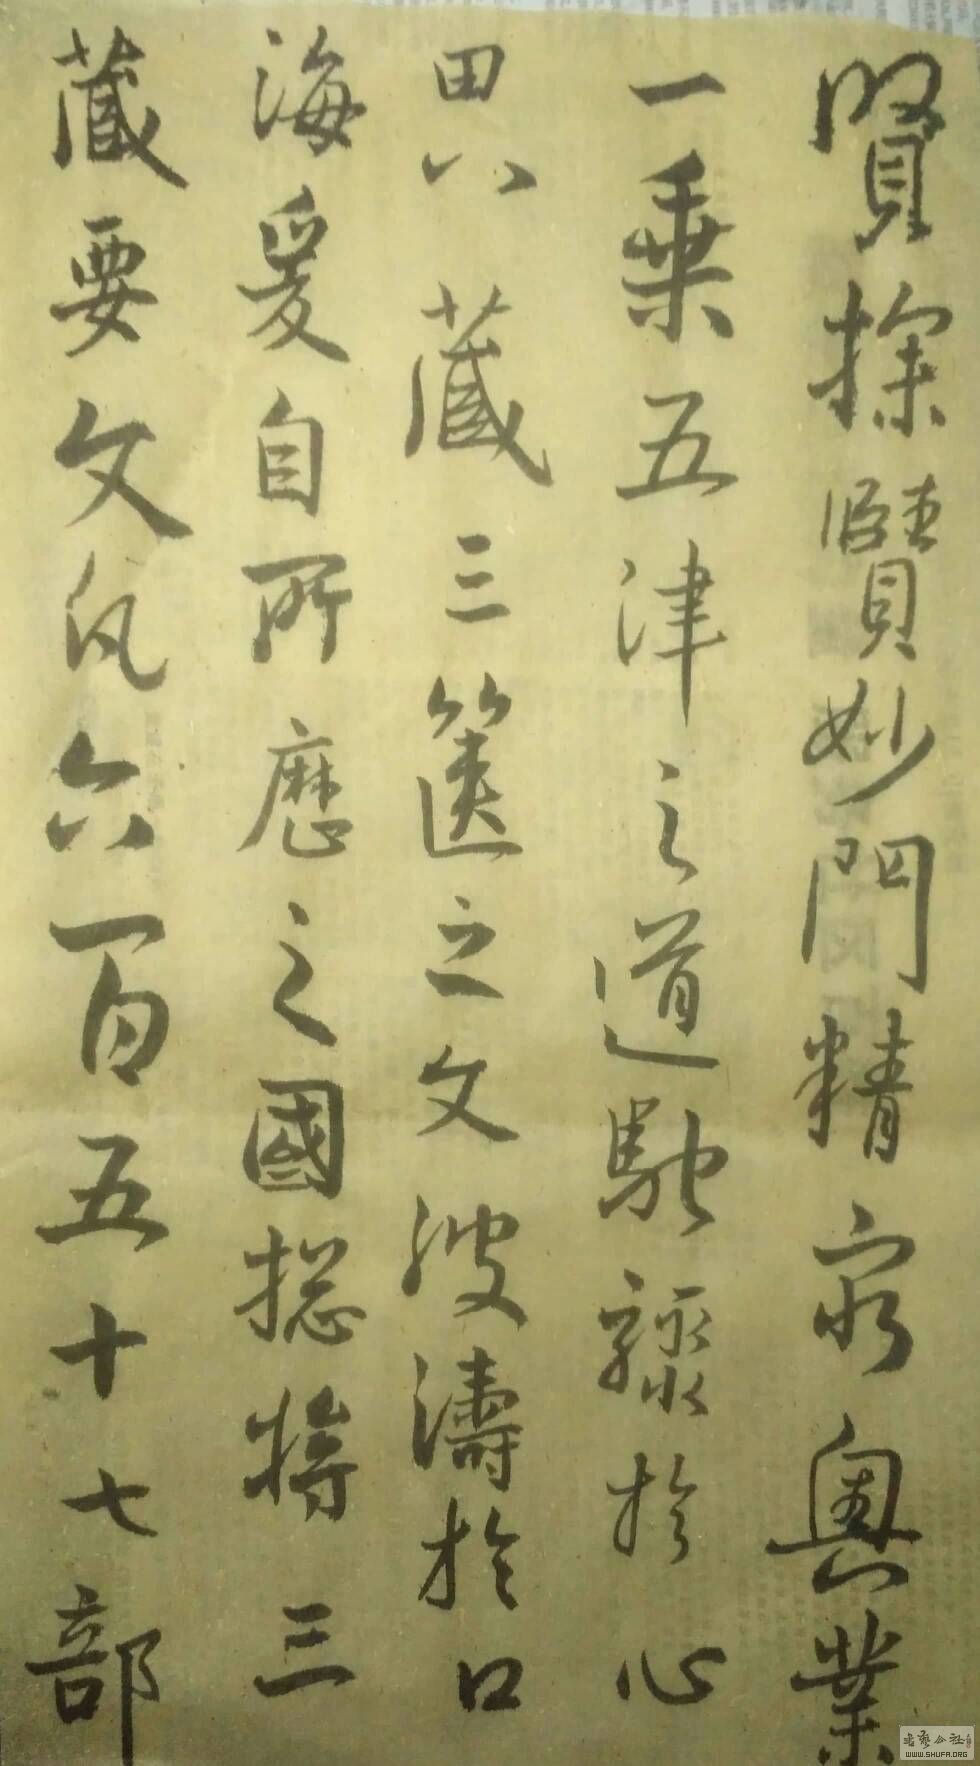 賢探賾妙門精窮奧業
一乗五津之道馳驟於心
田八藏三篋之文波濤於口
海爰自所歷之國揔將三
藏要文凡六百五十七部
WWW.SHUFA.ORG